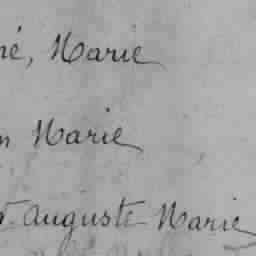 né, Marie
n Marie
Auguste Marie